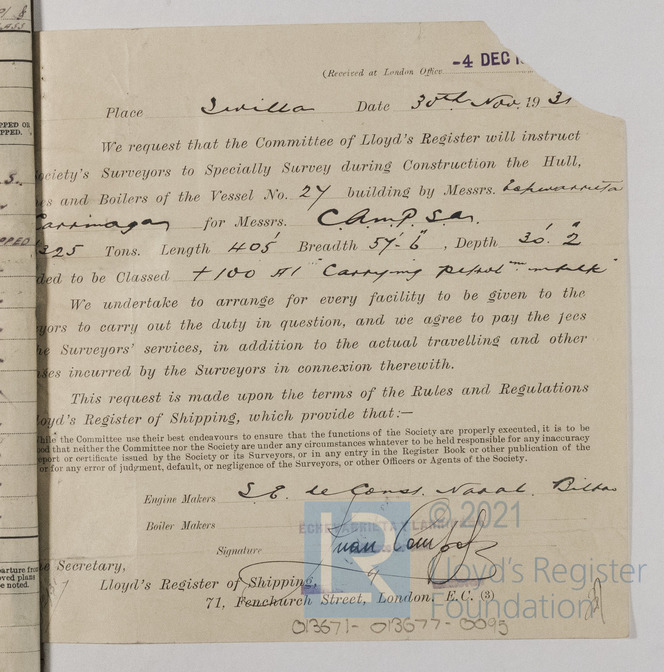 (Received at London Office -4 DEC 1
Place Sevilla Date 30th Nov. 1931
We request that the Committee of Lloyd's Register will instruct
ociety's Surveyors to Specially Survey during Construction the Hull,
es and Boilers of the Vessel No. 27 building by Messrs. Echevarrieta
Larrinaga for Messrs. C.A.M.P.S.A.
325 Tons. Length 405' Breadth 57'-6" , Depth 30'. 2"
ded to be Classed +100 A1 "Carrying petrol in bulk"
We undertake to arrange for every facility to be given to the
yors to carry out the duty in question, and we agree to pay the fees
e Surveyors' services, in addition to the actual travelling and other
ses incurred by the Surveyors in connexion therewith.
This request is made upon the terms of the Rules and Regulations
loyd's Register of Shipping, which provide that:—
hile the Committee use their best endeavours to ensure that the functions of the Society are properly executed, it is to be
od that neither the Committee nor the Society are under any circumstances whatever to be held responsible for any inaccuracy
eport or certificate issued by the Society or its Surveyors, or in any entry in the Register Book or other publication of the
or for any error of judgment, default, or negligence of the Surveyors, or other Officers or Agents of the Society.
Engine Makers S.E. de Const. Naval. Bilbao
Boiler Makers
ECHEVARRIETA Y LARRINAGA
Signature Juan Campos
e Secretary,
Lloyd's Register of Shipping,
71, Fenchurch Street, London, E.C. (3)
013671-013677-0095
LR © 2021
Lloyd's Register
Foundation
PPED OR
PPED.
parture from
oved plans
be noted.